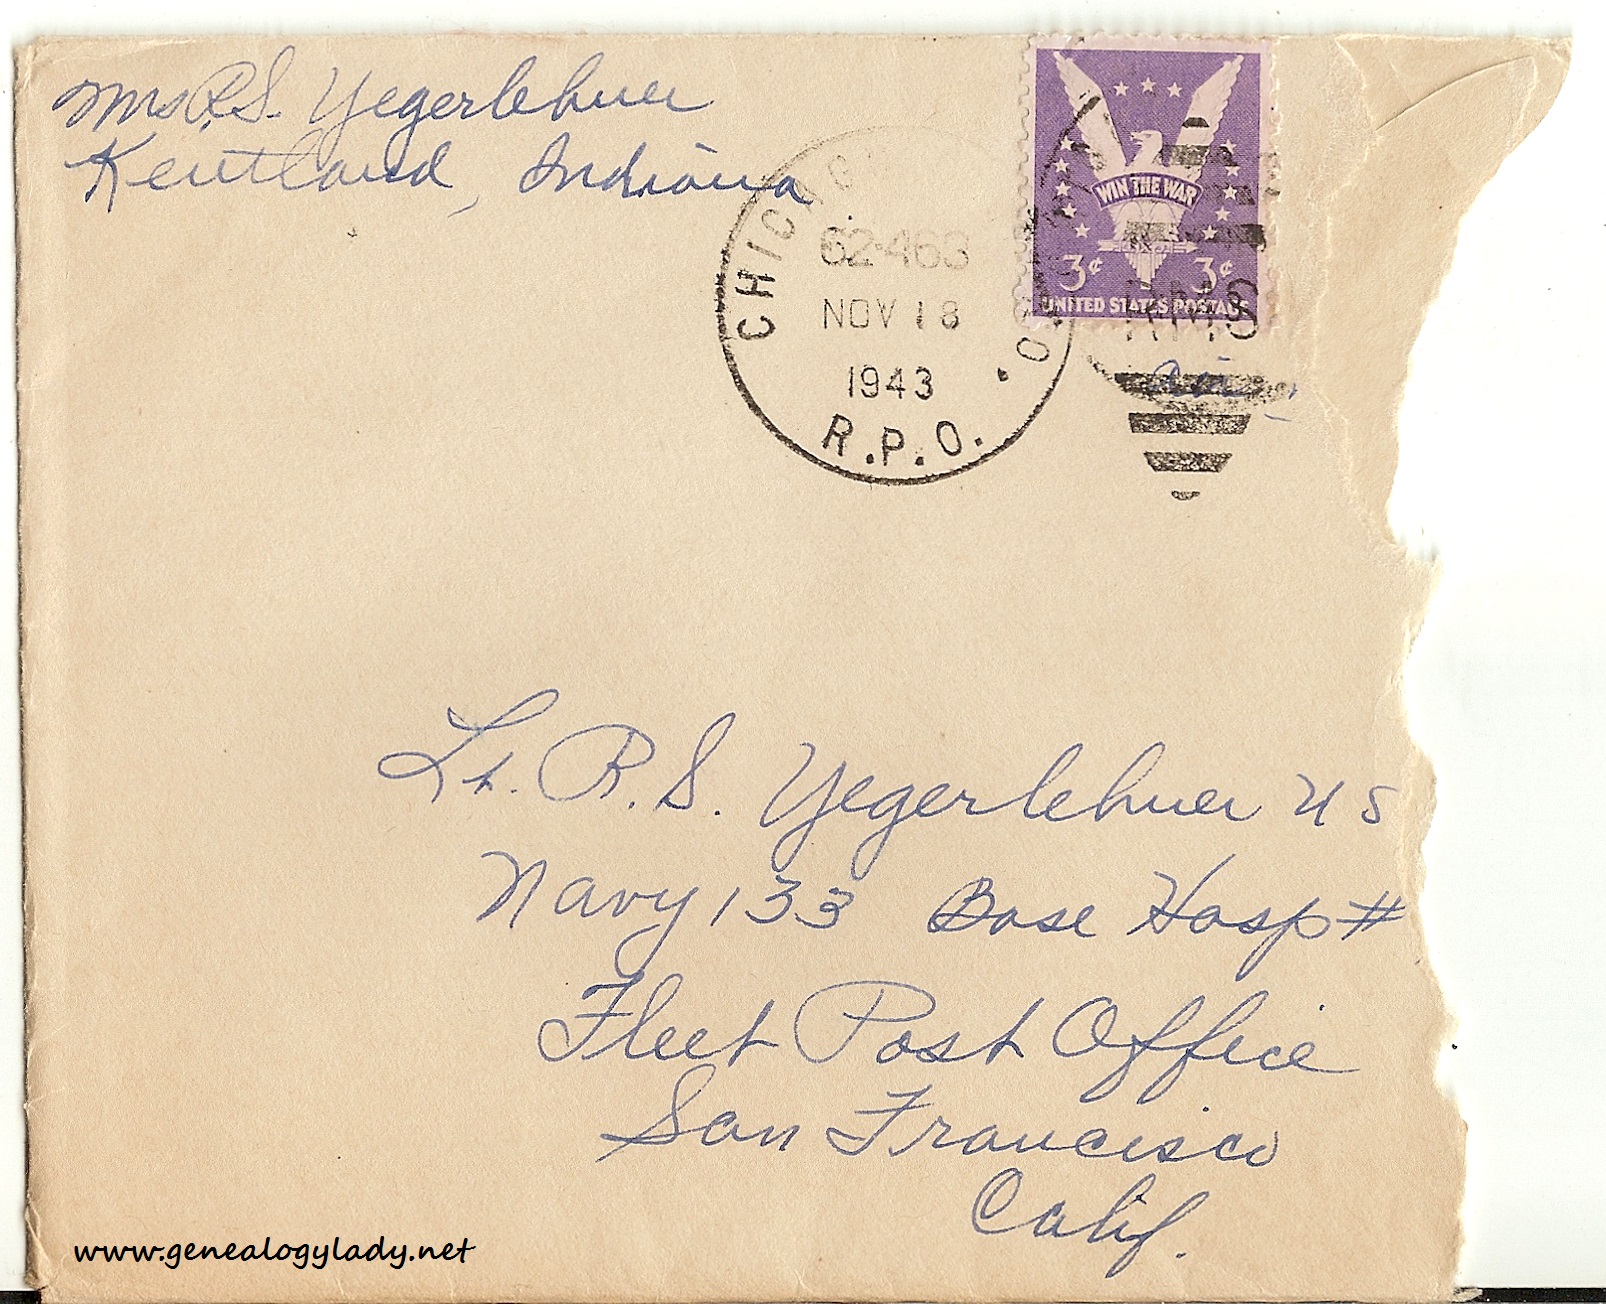 Mrs R.S. Yegerlehner
Kentland, Indiana
CHICAGO
62-463
NOV 18
1943
R.P.O.
WIN THE WAR
3¢ 3¢
UNITED STATES POSTAGE
RMS
Lt. R.S. Yegerlehner US
Navy 133 Base Hosp #
Fleet Post Office
San Francisco
Calif.
www.genealogylady.net